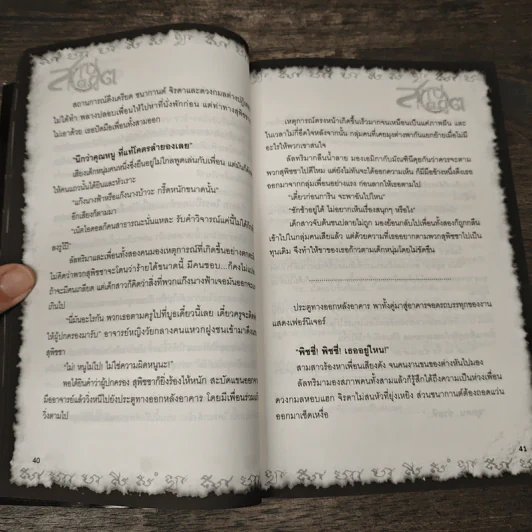 สถานการณ์ตึงเครียด ชนากานต์ จิรดาและดวงกมลต่าง
ไม่ได้ทำ พลางปลอบเพื่อนให้ไปหาที่นั่งพักก่อน แต่ท่าทาง
ไม่เอาด้วย เธอปัดมือเพื่อนทั้งสามออก
"นึกว่าคุณหนู ที่แท้โคตรล่ายองเลย"
เสียงเด็กหนุ่มคนหนึ่งซึ่งยืนอยู่ไม่ไกลพูดเล่นกับเพื่อน แต่มันก็ดัง
ให้คนแถวนั้นได้ยินและหัวเราะ
"แก๊งนางฟ้าหรือแก๊งนางบ้าวะ กรี๊ดหนักขนาดนั้น"
อีกเสียงก็ตามมา
ลัลทริมาและเพื่อนทั้งสองคนมองเหตุการณ์ที่เกิดขึ้นอย่างตกตะลึง
ไม่คิดว่าพวกสุพิชชาจะโดนว่าร้ายได้ขนาดนี้ มีคนชอบ...ก็คงไม่แปลก
ถ้าจะมีคนเกลียด แต่เด็กสาวก็คิดว่าสิ่งที่พวกแก๊งนางฟ้าเจอมันออกจะ
เกินไป
"นี่มันอะไรกัน พวกเธอตามครูไปที่บูธเดี๋ยวนี้เลย เดี๋ยวครูจะติดต่อ
ให้ผู้ปกครองมารับ" อาจารย์หญิงวัยกลางคนแหวกฝูงชนเข้ามาดึงแขน
สุพิชชา
"ไม่! หนูไม่ไป! ไม่ใช่ความผิดหนูนะ!"
พอได้ยินคำว่าผู้ปกครอง สุพิชชาก็ยิ่งร้องไห้หนัก สะบัดแขนออกจาก
มืออาจารย์แล้ววิ่งหนีไปยังประตูทางออกหลังอาคาร โดยมีเพื่อนร่วมแก๊ง
วิ่งตามไป
40
เหตุการณ์ตรงหน้าเกิดขึ้นเร็วมากจนเหมือนเป็นแค่ภาพฝัน และ
ในเวลาไม่กี่อึดใจหลังจากนั้น กลุ่มคนที่เคยมุงต่างพากันแยกย้ายเมื่อไม่มี
อะไรให้พวกเขาสนใจ
ลัลทริมากลืนน้ำลาย มองเอมิกากับมัณฑินีคุยกันว่าควรจะตาม
พวกสุพิชชาไปดีไหม แต่ยังไม่ทันจะได้ออกความเห็น ก็มีมือข้างหนึ่งดึงเธอ
ออกมาจากกลุ่มเพื่อนอย่างแรง ก่อนลากให้เธอตามไป
"เดี๋ยวก่อนการิน จะพาฉันไปไหน"
"ชักช้าอยู่ได้ ไม่อยากเห็นเรื่องสนุกๆ หรือไง"
เด็กสาวจับต้นชนปลายไม่ถูก มองย้อนกลับไปเพื่อนทั้งสองก็ถูกกลืน
เข้าไปในกลุ่มคนเสียแล้ว แต่ด้วยความที่เธออยากตามพวกสุพิชชาไปเป็น
ทุนเดิม จึงทำให้ขาของเธอก้าวตามเด็กหนุ่มโดยไม่ขัดขืน
ประตูทางออกหลังอาคาร พาทั้งคู่มาสู่อาคารจอดรถบรรทุกของงาน
แสดงเฟอร์นิเจอร์
"พิชชี่! พิชชี่! เธออยู่ไหน!"
สามสาวร้องหาเพื่อนเสียงดัง จนคนงานขนของต่างหันไปมอง
ลัลทริมามองสภาพคนทั้งสามแล้วก็รู้สึกได้ถึงความเป็นห่วงเพื่อน
ดวงกมลหอบแฮก จิรดาไม่สนหัวที่ยุ่งเหยิง ส่วนชนากานต์ต้องถอดแว่น
ออกมาเช็ดเหงื่อ
41